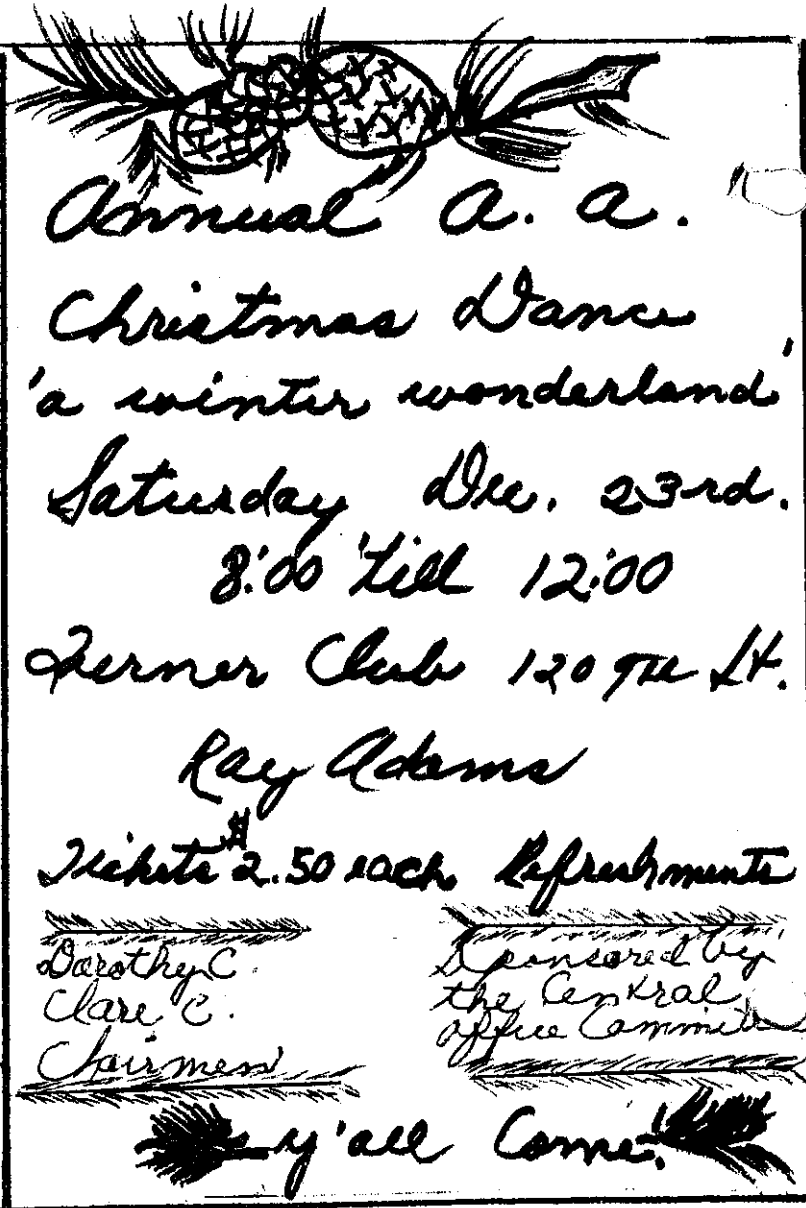 Annual A. A.
Christmas Dance
'a winter wonderland'
Saturday Dec. 23rd.
8:00 'till 12:00
Turner Club 120 9th St.
Ray Adams
Tickets $2.50 each Refreshments
Dorothy C.
Clare C.
Chairmen
Sponsored by
the Central
office Committee
y'all Come.